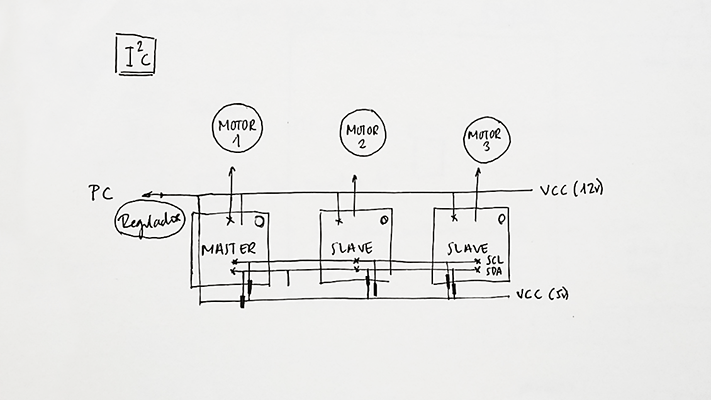 I²C
MOTOR
1
MOTOR
2
MOTOR
3
PC
VCC (12V)
Regulador
MASTER
SLAVE
SLAVE
SCL
SDA
VCC (5V)